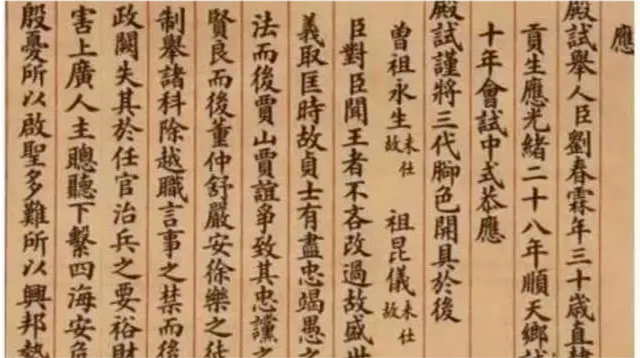 應
殿試舉人臣劉春霖年三十歲直隸
貢生應光緒二十八年順天鄉試
十年會試中式恭應
殿試謹將三代腳色開具於後
曾祖永生未仕故 祖昆儀未仕故
臣對臣聞王者不吝改過故盛世
義取匡時故貞士有盡忠竭愚之
法而後賈山賈誼爭致其忠讜之
賢良而後董仲舒嚴安徐樂之徒
制舉諸科除越職言事之禁而後
政闕失其於任官治兵之要裕財
害上廣人主聰聽下繫四海安危
殷憂所以啟聖多難所以興邦勢